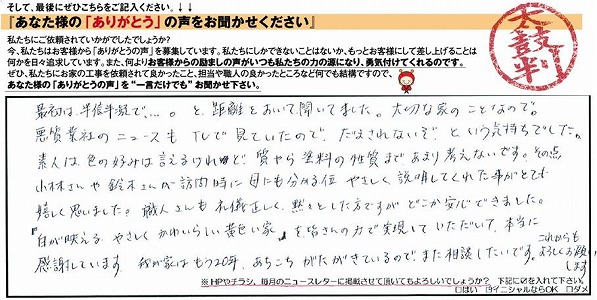 そして、最後にぜひこちらをご記入ください。↓↓
『あなた様の「ありがとう」の声をお聞かせください』
私たちにご依頼されていかがでしたでしょうか?
今、私たちはお客様から「ありがとうの声」を募集しています。私たちにしかできないことはないか、もっとお客様にして差し上げることは
何かを日々追求しています。また、何よりお客様からの励ましの声がいつも私たちの力の源になり、勇気付けてくれるのです。
ぜひ、私たちにお家の工事を依頼されて良かったこと、担当や職人の良かったところなど何でも結構ですので、
あなた様の「ありがとう」の声を"一言だけでも"お聞かせ下さい。
太鼓判
最初は、半信半疑で…。と、距離をおいて聞いてました。大切な家のことなので。
悪質業社のニュースもTVで見ていたので、だまされないぞという気持ちでした。
素人は色の好みは言えるけれど、質やら塗料の性質まであまり考えないです。その点
小林さんや鈴木さんが訪問時に母にも分かる位やさしく説明してくれた事がとても
嬉しく思いました。職人さんも礼儀正しく、黙々とした方ですがどこか安心できました。
"白が映える やさしくかわいらしい黄色い家"を皆さんの力で実現していただいて、本当に
感謝しています。我が家はもう20年、あちこちがたがきているので、また相談したいです。これからも
よろしくお願い
します
※HPやチラシ、毎月のニュースレターに掲載させて頂いてもよろしいでしょうか? 下記に☑を入れて下さい。
□はい ☑イニシャルならOK □ダメ